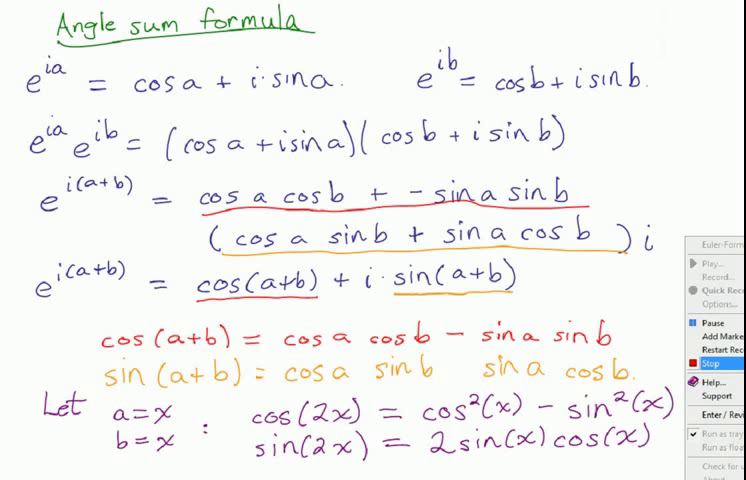 Angle sum formula
e^{ia} = cos a + i · sin a. e^{ib} = cos b + i sin b.
e^{ia} e^{ib} = (cos a + i sin a)(cos b + i sin b)
e^{i(a+b)} = cos a cos b + - sin a sin b
(cos a sin b + sin a cos b) i
e^{i(a+b)} = cos(a+b) + i · sin(a+b)
cos (a+b) = cos a cos b - sin a sin b
sin (a+b) = cos a sin b sin a cos b.
Let a=x : cos(2x) = cos²(x) - sin²(x)
b=x sin(2x) = 2 sin(x) cos(x)
Euler-Form
Play...
Record...
Quick Rec
Options...
Pause
Add Marke
Restart Rec
Stop
Help...
Support
Enter / Revi
Run as tray
Run as floa
Check for u
About